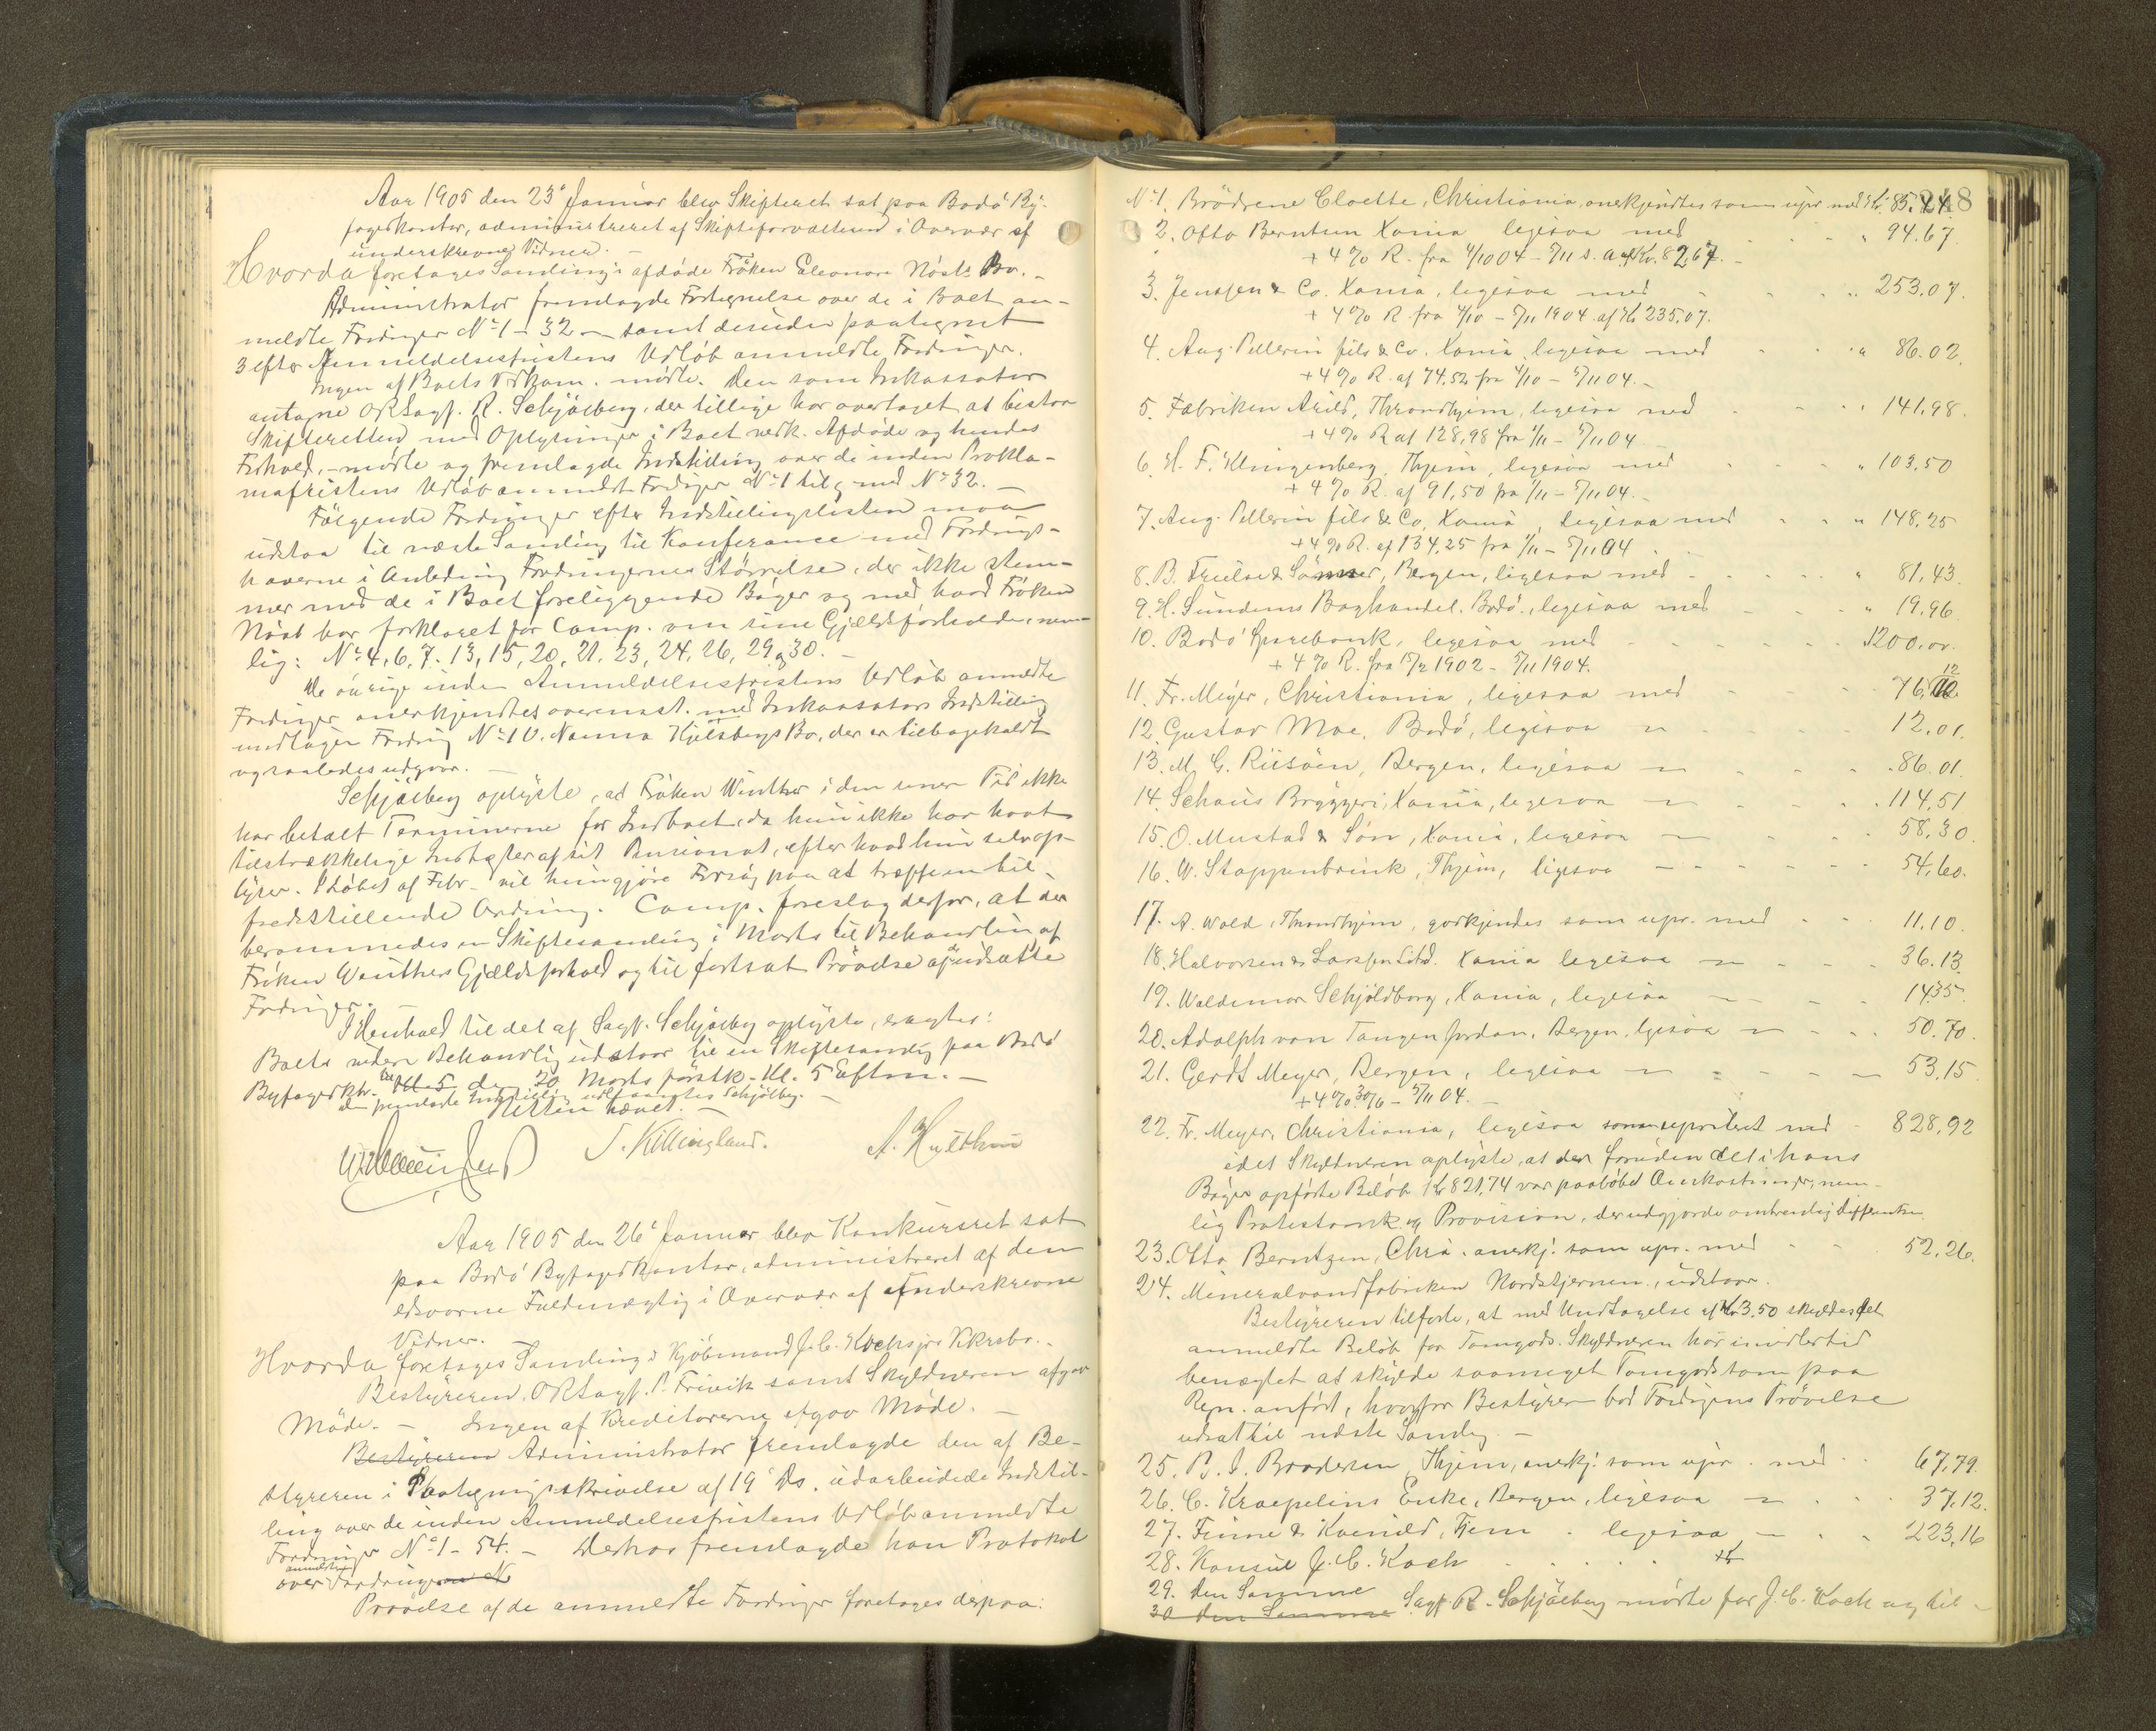 Aar 1905 den 23' Januar blev Skifteret sat paa Bodø By-
fogedkontor, administreret af Skifteforvalteren i Overvær af
underskrevne Vidner. -
Hvorda foretages Samling i afdøde Frøken Eleonore Nøsts Bo. -
Administrator fremlagde Fortegnelse over de i Boet an-
meldte Fordringer No 1 - 32 - samt desuden paategnet
3 efter Anmeldelsesfristens Udløb anmeldte Fordringer.
Ingen af Boets Vedkom. mødte. Den som Inkassator
antagne ORSagf. R. Schjølberg, der tillige har overtaget at bistaa
Skifteretten med Oplysninger i Boet vedk. Afdøde og hendes
Forhold, - mødte og fremlagde Indstilling over de inden Prokla-
mafristens Udløb anmeldte Fordringer No 1 til og med No 32. -
Følgende Fordringer efter Indstillingslisten maa
udstaa til næste Samling til Konferance med Fordrings-
haverne i Anledning Fordringernes Størrelse, der ikke stem-
mer med de i Boet foreliggende Bøger og med hvad Frøken
Nøst har forklaret for Comp. om sine Gjældsforholde, nem-
lig: No 4, 6, 7. 13, 15, 20, 21. 23, 24, 26, 29 og 30. -
De øvrige inden Anmeldelsesfristens Udløb anmeldte
Fordringer anerkjendtes overenst. med Inkassators Indstilling
undtagen Fordring No 10. Nanna Bo, der er tilbagekaldt
og saaledes udgaar. -
Schjølberg oplyste, at Frøken Winther i den senere Tid ikke
har betalt Terminerne for Indboet, da hun ikke har havt
tilstrækkelige Indtægter af sit Pensionat, efter hvad hun selv op-
lyser. I Løbet af Febr. vil hun gjøre Forsøg paa at træffe en til-
fredstillende Ordning. Comp. foreslog derfor, at der
berammedes en Skiftesamling i Marts til Behandling af
Frøken Winthers Gjældsforhold og til fortsat Prøvelse af de udsatte
Fordringer. -
I Henhold til det af Sagf. Schjølberg oplyste, eragtes:
Boets videre Behandling udstaar til en Skiftesamling paa Bodø
Byfogedktr. den 20 Marts førstk. Kl. 5 Eftm. -
den fremlagte Indstilling Schjølberg. -
Retten hævet. -
J. Killingland.
A. Hulthin
Aar 1905 den 26' Januar blev Konkursret sat
paa Bodø Byfogedkontor, administreret af den
edsvorne Fuldmægtig i Overvær af underskrevne
Vidner. -
Hvorda foretages Samling i Kjøbmand J. C. Kochs jrs Kkrsbo. -
Bestyreren, ORSagf. P. Frivik samt Skyldneren afgav
Møde. - Ingen af Kreditorerne afgav Møde. -
Bestyreren Administrator fremlagde den af Be-
styreren i Paategningsskrivelse af 19' ds. udarbeidede Indstil-
ling over de inden Anmeldelsesfristens Udløb anmeldte
Fordringer No 1 - 54. - Derhos fremlagde han Protokol
anmeldte
over Fordringerne No
Prøvelse af de anmeldte Fordringer foretages derpaa:
248
No 1. Brødrene Cloetta, Christiania, anerkjendtes som upr. med Kr. 85.44.
2. Otto Berntsen Xania ligesaa med " 94.67
+ 4 % R. fra 4/10 04 - 5/11 s. A. af Kr. 82,67. -
3. Jenssen & Co. Xania, ligesaa med " 253.07.
+ 4 % R fra 4/10 - 5/11 1904 af Kr 235,07.
4. Aug. Pellerin fils & Co. Xania, ligesaa med " 86.02.
+ 4 % R. af 74.52 fra 4/10 - 5/11 04. -
5. Fabriken Arild, Throndhjem, ligesaa med " 141,98.
+ 4 % R af 128,98 fra 1/11 - 5/11 04. -
6. H. F. Klingenberg, Thjem, ligesaa med " 103,50
+ 4 % R. af 91,50 fra 1/11 - 5/11 04. -
7. Aug. Pellerin fils & Co, Xania, ligesaa med " 148,25
+ 4 % R. af 134,25 fra 1/11 - 5/11 04.
8. B. Friele & Sønner, Bergen, ligesaa med " 81,43.
9. H. Sundems Boghandel. Bodø, ligesaa med " 19,96
10. Bodø Sparebank, ligesaa med 1200.00.
+ 4 % R. fra 15/2 1902 - 5/11 1904.
11. Fr. Meyer, Christiania, ligesaa med 76,12
12. Gustav Moe, Bodø, ligesaa " 12,01.
13. M. G. Riisøen, Bergen, ligesaa " 86.01.
14. Schous Bryggeri, Xania, ligesaa " 114,51
15. O. Mustad & Søn, Xania, ligesaa " 58,30
16. W. Stoppenbrink, Thjem, ligesaa - 54,60.
17. A. Wold, Throndhjem, godkjendes som upr. med 11.10.
18. Halvorsen & Larssen Ltd. Xania ligesaa " 36.13
19. Waldemar Schjøldborg, Xania, ligesaa - 14,35
20. Adolph von Tangen Jordan, Bergen, ligesaa " 50.70.
21. Gerdt Meyer, Bergen, ligesaa " 53,15
+ 4 % 30/6 - 5/11 04. -
22. Fr. Meyer, Christiania, ligesaa som uprivilert med - 828,92
idet Skyldneren oplyste, at der foruden det i hans
Bøger opførte Beløb Kr 821,74 var paaløbet Omkostninger, nem-
lig Protestomk. og Provision, der udgjorde omtrentlig differentsen.
23. Otto Berntzen, Chra. anerkj. som upr. med 52,26.
24. Mineralvandfabriken Nordstjernen, udstaar.
Bestyreren tilførte, at med Undtagelse af Kr 3.50 skyldes det
anmeldte Beløb for Tomgods. Skyldneren har imidlertid
benægtet at skylde saameget Tomgods som paa
Regn. anført, hvorfor Bestyrer bad Fordringens Prøvelse
udsat til næste Samling. -
25. B. I. Brodersen, Thjem, anerkj. som upr. med 67,79.
26. C. Kraepelins Enke, Bergen, ligesaa " 37,12.
27. Finne & Kvenild, Tjem. ligesaa - 223,16
28. Konsul J. C. Koch
29. Den Samme Sagf. R. Schjølberg mødte for J. C. Koch og til-
30 den Samme